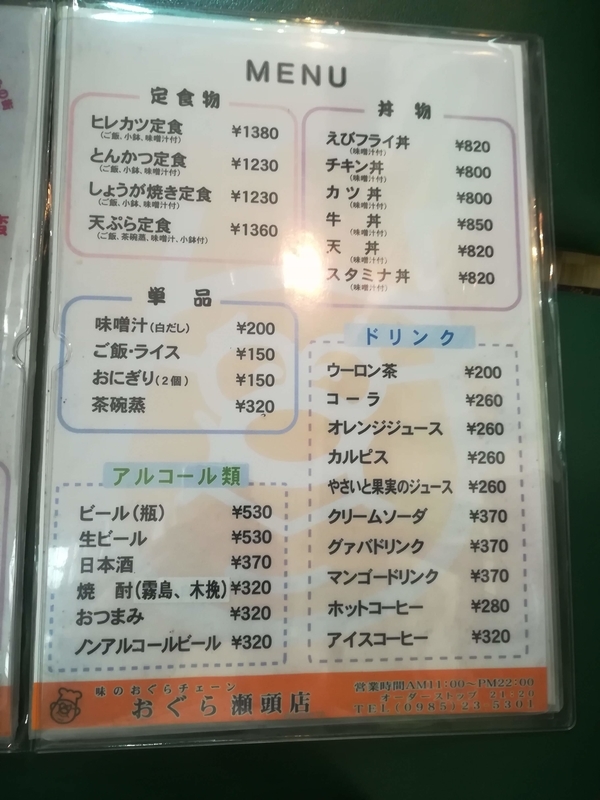 MENU
定食物
ヒレカツ定食 ¥1380
(ご飯、小鉢、味噌汁付)
とんかつ定食 ¥1230
(ご飯、小鉢、味噌汁付)
しょうが焼き定食 ¥1230
(ご飯、小鉢、味噌汁付)
天ぷら定食 ¥1360
(ご飯、茶碗蒸、味噌汁、小鉢付)
丼物
えびフライ丼 ¥820
(味噌汁付)
チキン丼 ¥800
(味噌汁付)
カツ丼 ¥800
(味噌汁付)
牛丼 ¥850
(味噌汁付)
天丼 ¥820
(味噌汁付)
スタミナ丼 ¥820
(味噌汁付)
単品
味噌汁(白だし) ¥200
ご飯・ライス ¥150
おにぎり(2個) ¥150
茶碗蒸 ¥320
ドリンク
ウーロン茶 ¥200
コーラ ¥260
オレンジジュース ¥260
カルピス ¥260
やさいと果実のジュース ¥260
クリームソーダ ¥370
グァバドリンク ¥370
マンゴードリンク ¥370
ホットコーヒー ¥280
アイスコーヒー ¥320
アルコール類
ビール(瓶) ¥530
生ビール ¥530
日本酒 ¥370
焼酎(霧島、木挽) ¥320
おつまみ ¥320
ノンアルコールビール ¥320
味のおぐらチェーン
おぐら瀬頭店
営業時間AM11:00~PM22:00
オーダーストップ 21:20
TEL(0985)23 5301